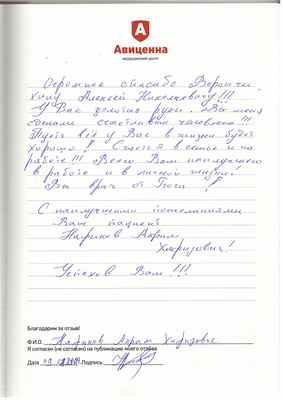 А
Авиценна
медицинский центр
Огромное спасибо
Алексей Николаевичу!!!
У Вас золотые руки. Вы меня
сделали счастливым человеком!!!
Пусть всё у Вас в жизни будет
хорошо! Счастья в семье и на
работе!!! Всего Вам наилучшего
в работе и в личной жизни.
Вы врач от Бога!
С наилучшими пожеланиями
Ваш пациент
Акрам
Хафизович!
Успехов Вам!!!
Благодарим за отзыв!
Ф.И.О. Акрам Хафизович
Я согласен (не согласен) на публикацию моего отзыва
Дата Подпись